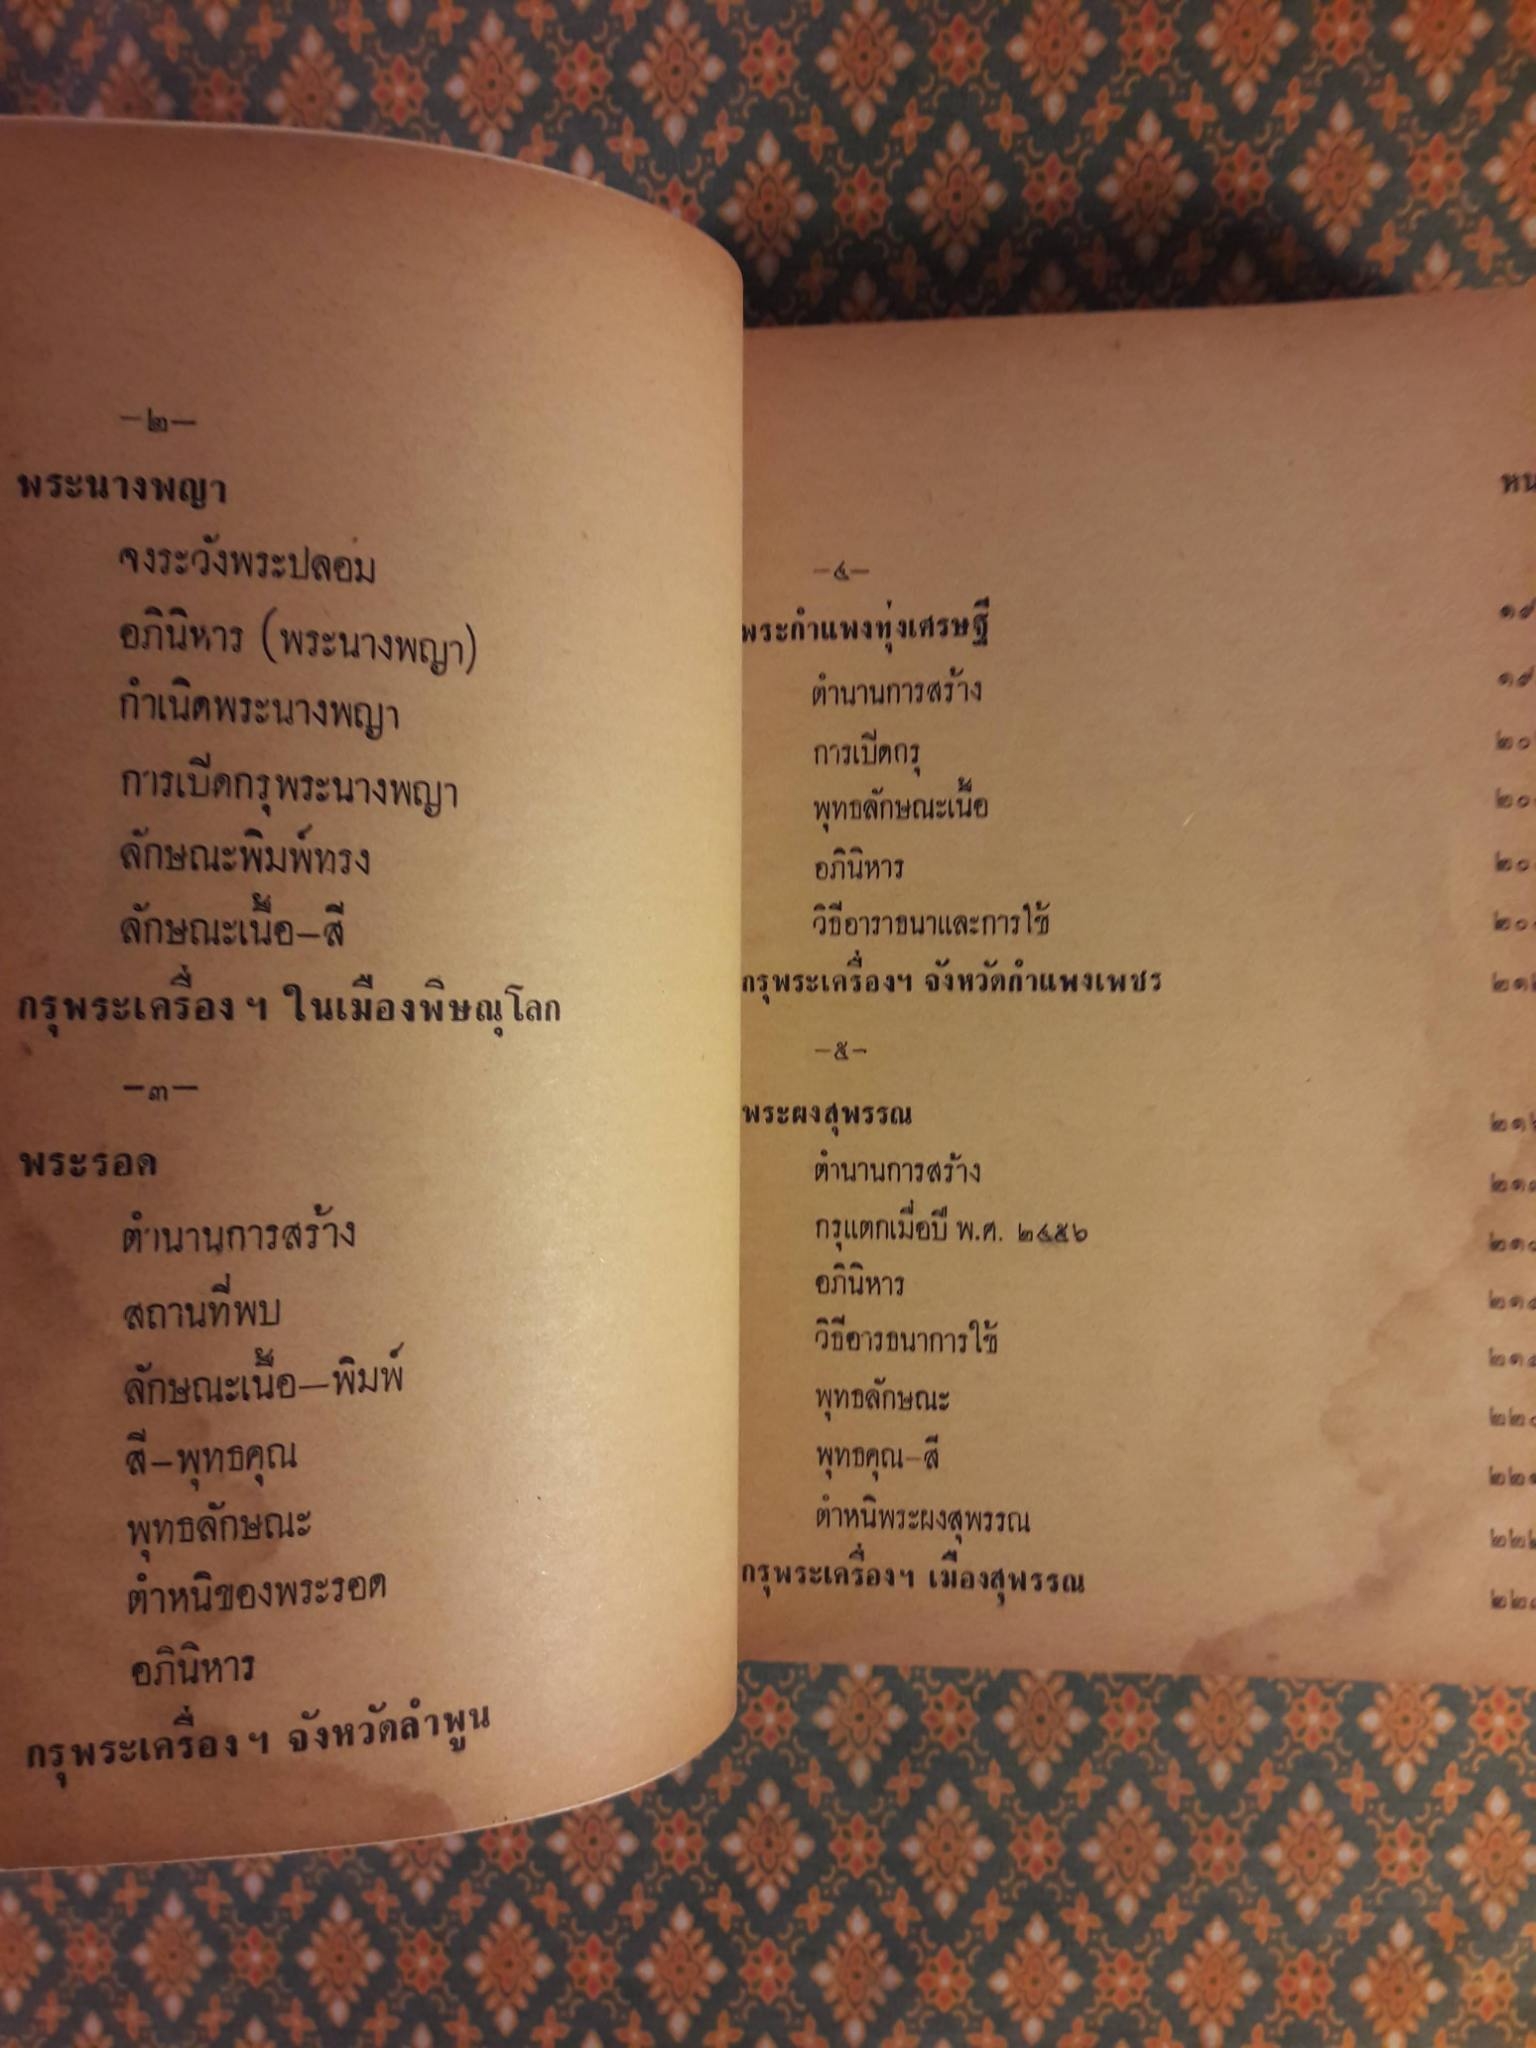 —๒—
พระนางพญา
จงระวังพระปลอม
อภินิหาร (พระนางพญา)
กำเนิดพระนางพญา
การเปิดกรุพระนางพญา
ลักษณะพิมพ์ทรง
ลักษณะเนื้อ—สี
กรุพระเครื่อง ฯ ในเมืองพิษณุโลก
—๓—
พระรอด
ตำนานการสร้าง
สถานที่พบ
ลักษณะเนื้อ—พิมพ์
สี—พุทธคุณ
พุทธลักษณะ
ตำหนิของพระรอด
อภินิหาร
กรุพระเครื่อง ฯ จังหวัดลำพูน
—๔—
พระกำแพงทุ่งเศรษฐี
ตำนานการสร้าง
การเปิดกรุ
พุทธลักษณะเนื้อ
อภินิหาร
วิธีอาราธนาและการใช้
กรุพระเครื่องฯ จังหวัดกำแพงเพชร
—๕—
พระผงสุพรรณ
ตำนานการสร้าง
กรุแตกเมื่อปี พ.ศ. ๒๔๕๖
อภินิหาร
วิธีอารธนาการใช้
พุทธลักษณะ
พุทธคุณ—สี
ตำหนิพระผงสุพรรณ
กรุพระเครื่องฯ เมืองสุพรรณ